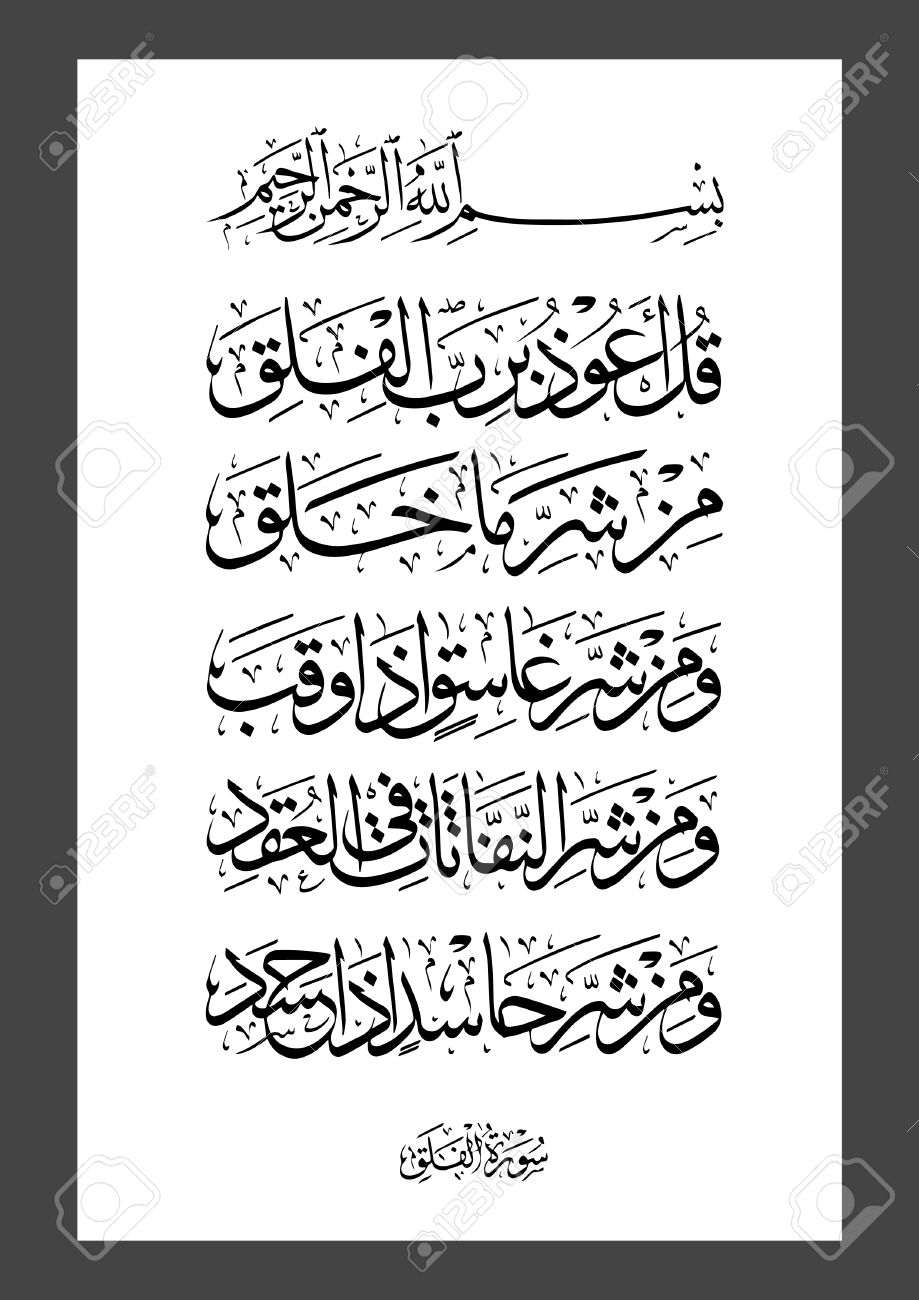 بِسْمِ ٱللَّهِ ٱلرَّحْمَٰنِ ٱلرَّحِيمِ
قُلْ أَعُوذُ بِرَبِّ الْفَلَقِ
مِنْ شَرِّ مَا خَلَقَ
وَمِنْ شَرِّ غَاسِقٍ إِذَا وَقَبَ
وَمِنْ شَرِّ النَّفَّاثَاتِ فِي الْعُقَدِ
وَمِنْ شَرِّ حَاسِدٍ إِذَا حَسَدَ
سُورَةُ الْفَلَقِ
123RF